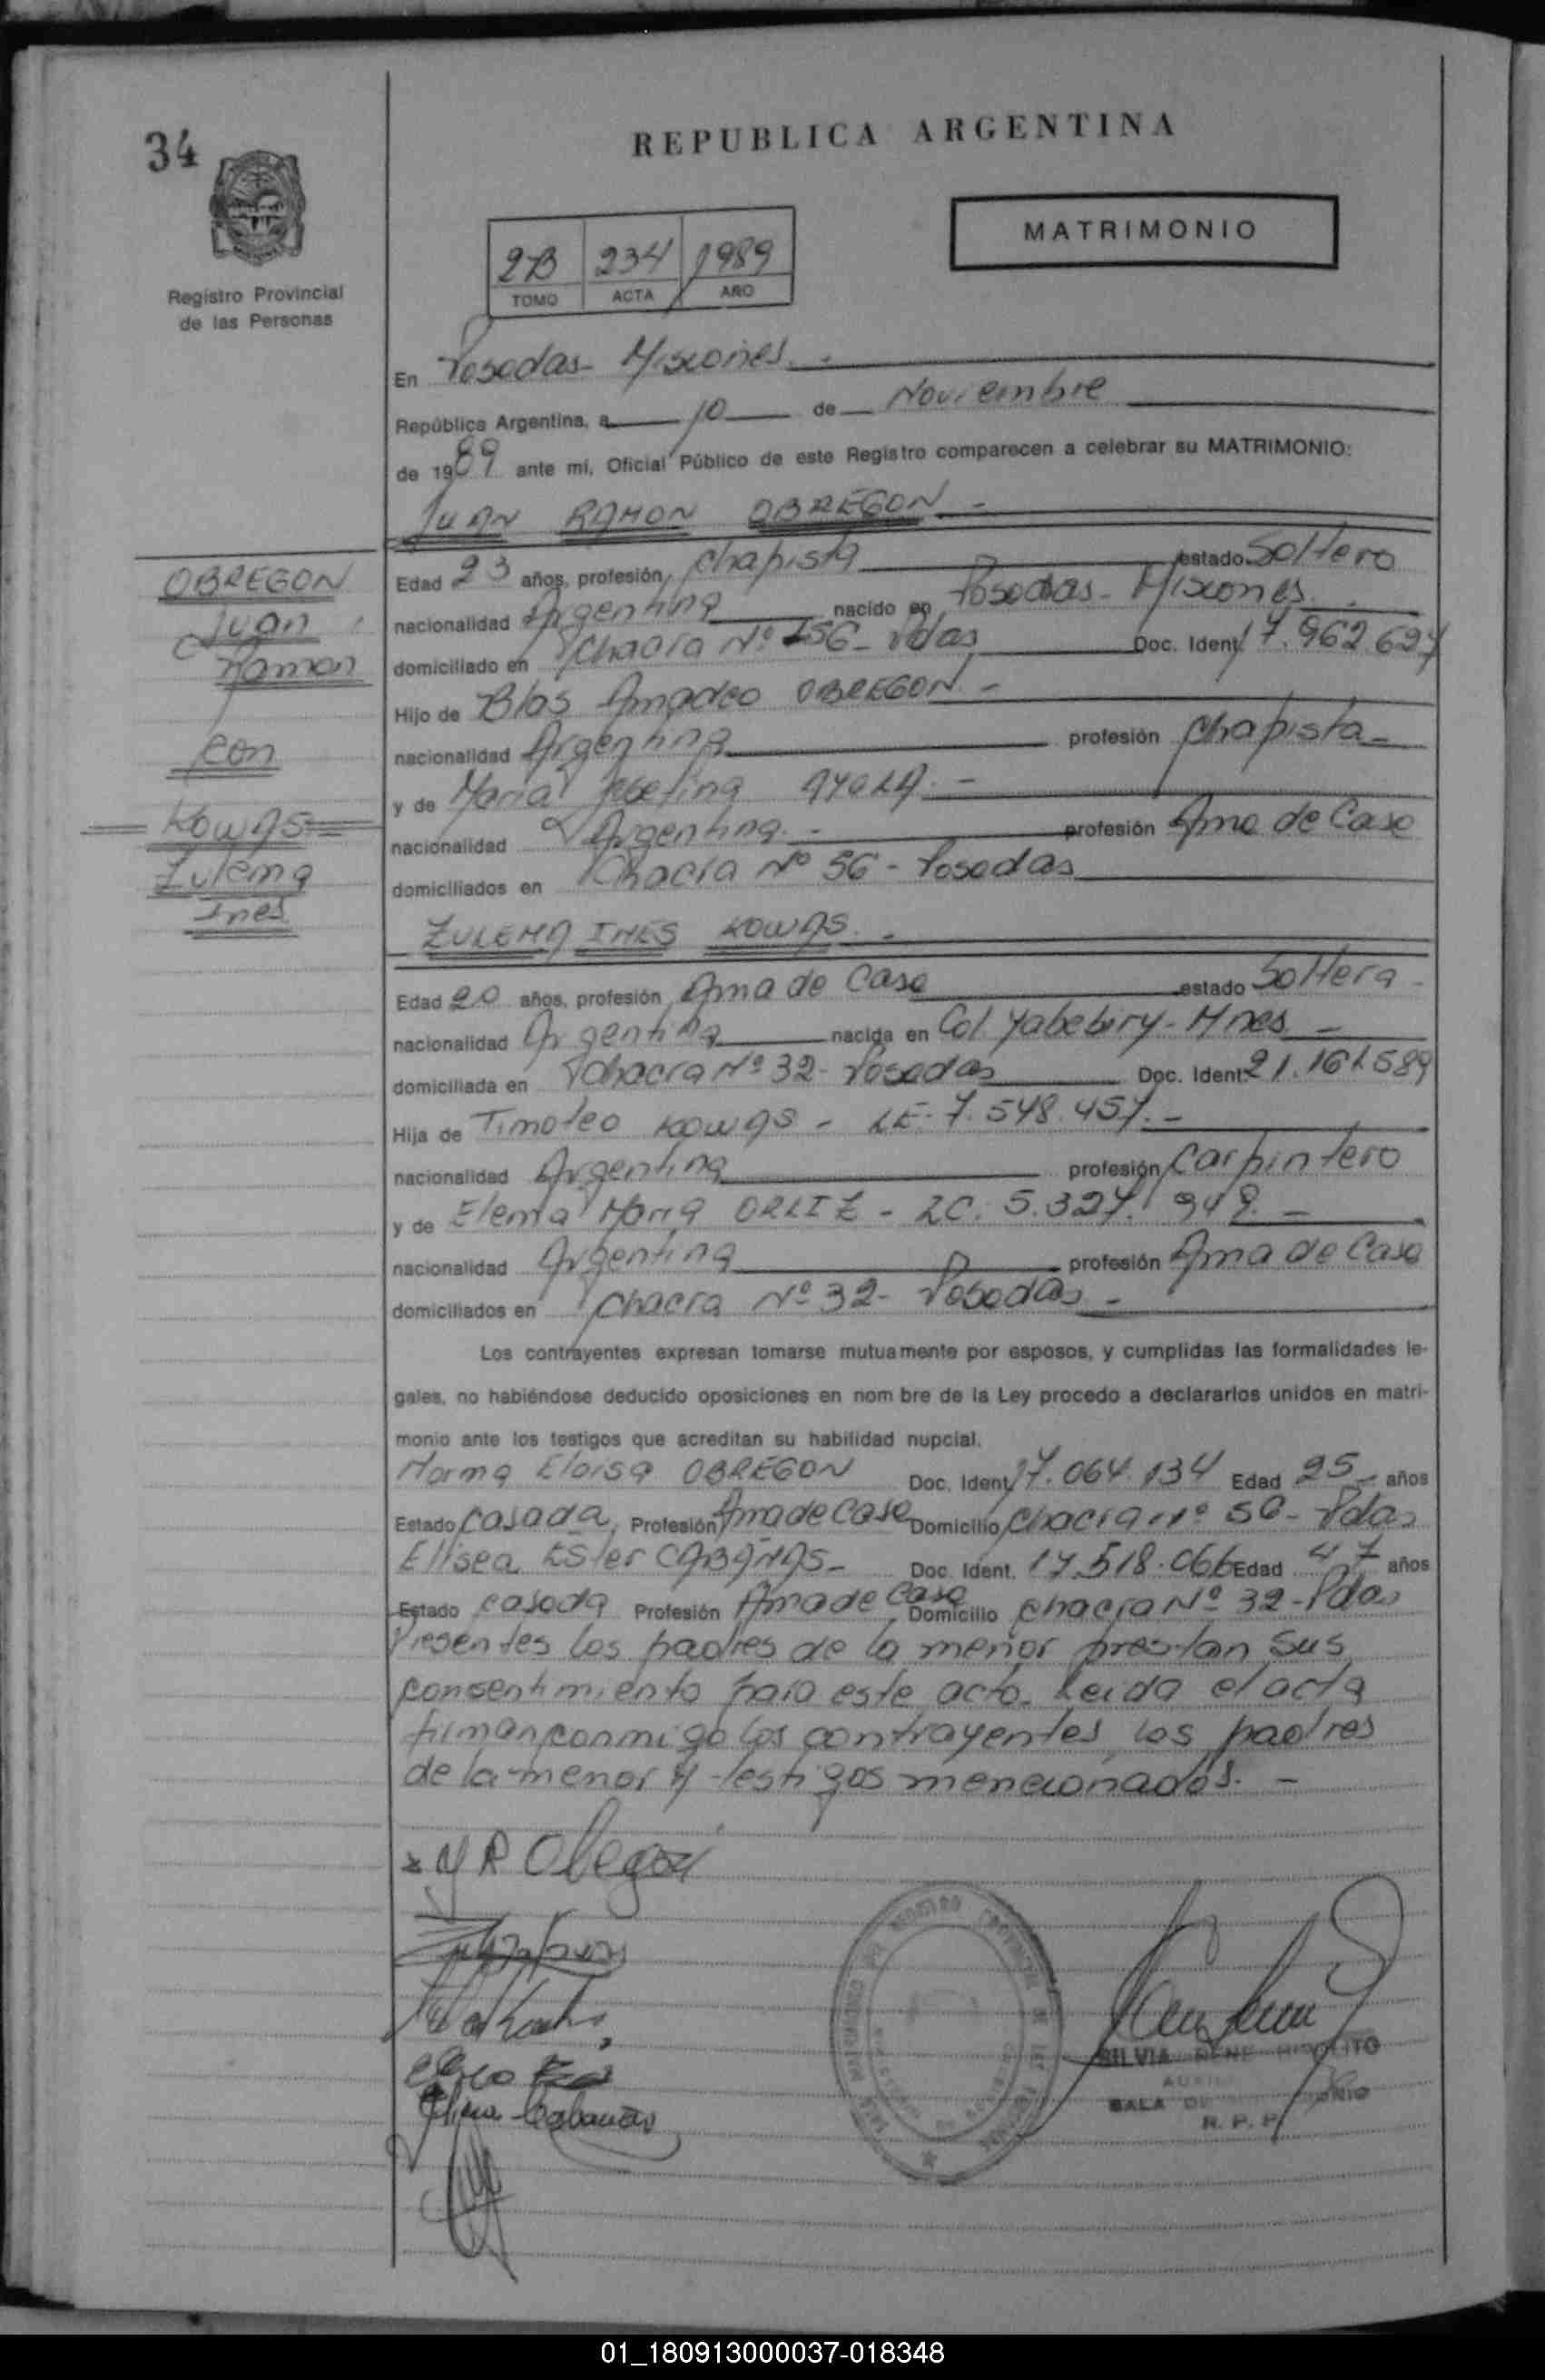 34
REPUBLICA ARGENTINA
MATRIMONIO
2B 234 1989
TOMO ACTA AÑO
Registro Provincial
de las Personas
En Posadas - Misiones. -
República Argentina, a 10 de Noviembre
de 1989 ante mí, Oficial Público de este Registro comparecen a celebrar su MATRIMONIO:
JUAN RAMON OBREGON -
OBREGON
Juan
Ramon
con
KOWAS
Zulema
Ines
Edad 23 años, profesión Chapista estado Soltero
nacionalidad Argentina nacido en Posadas - Misiones.
domiciliado en Chacra Nº 156 - Pdas Doc. Ident. 17.962.697
Hijo de Blas Amadeo OBREGON -
nacionalidad Argentina profesión Chapista -
y de Maria AYALA. -
nacionalidad Argentina. - profesión Ama de Casa
domiciliados en Chacra Nº 56 - Posadas
ZULEMA INES KOWAS. -
Edad 20 años, profesión Ama de Casa estado Soltera -
nacionalidad Argentina nacida en Col. Yabebiry - Mnes. -
domiciliada en Chacra Nº 32 - Posadas Doc. Ident. 21.161.589
Hija de Timoteo KOWAS - LE. 7.548.457. -
nacionalidad Argentina profesión Carpintero
y de Elema Maria ORTIZ - LC. 5.327.949. -
nacionalidad Argentina profesión Ama de Casa
domiciliados en Chacra Nº 32 - Posadas -
Los contrayentes expresan tomarse mutuamente por esposos, y cumplidas las formalidades le-
gales, no habiéndose deducido oposiciones en nom bre de la Ley procedo a declararlos unidos en matri-
monio ante los testigos que acreditan su habilidad nupcial.
Norma Eloisa OBREGON Doc. Ident. 17.064.134 Edad 25 - años
Estado Casada, Profesión Ama de Casa Domicilio Chacra nº 56 - Pdas
Elisea Ester CABAÑAS - Doc. Ident. 17.518.066 Edad 47 años
Estado casada Profesión Ama de Casa Domicilio Chacra Nº 32 - Pdas
Presentes los padres de la menor prestan sus
consentimiento para este acto. Leida el acta
firman conmigo los contrayentes, los padres
de la menor y testigos mencionados. -
J R Obregon
Elisea Cabañas
SILVIA RENE HIPOLITO
SALA DE
R. P. P.
01_180913000037-018348